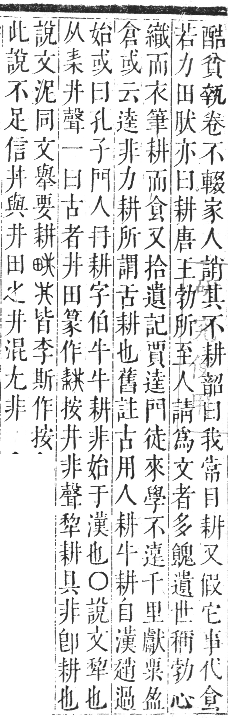 酷貧執卷不輟家人誚其不耕韶曰我常目耕又假它事代食
若力田肰亦曰耕唐王勃所至人請爲文者多餽遺世稱勃心
織而衣筆耕而食又拾遺記賈逵門徒來學不遠千里獻粟盈
倉或云逵非力耕所謂舌耕也舊註古用人耕牛耕自漢趙過
始或曰孔子門人冉耕字伯牛牛耕非始于漢也〇說文犂也
从耒井聲一曰古者井田篆作耕按井非聲犂耕具非卽耕也
說文泥同文舉要耕畊皆李斯作按
此說不足信井與井田之井混尢非